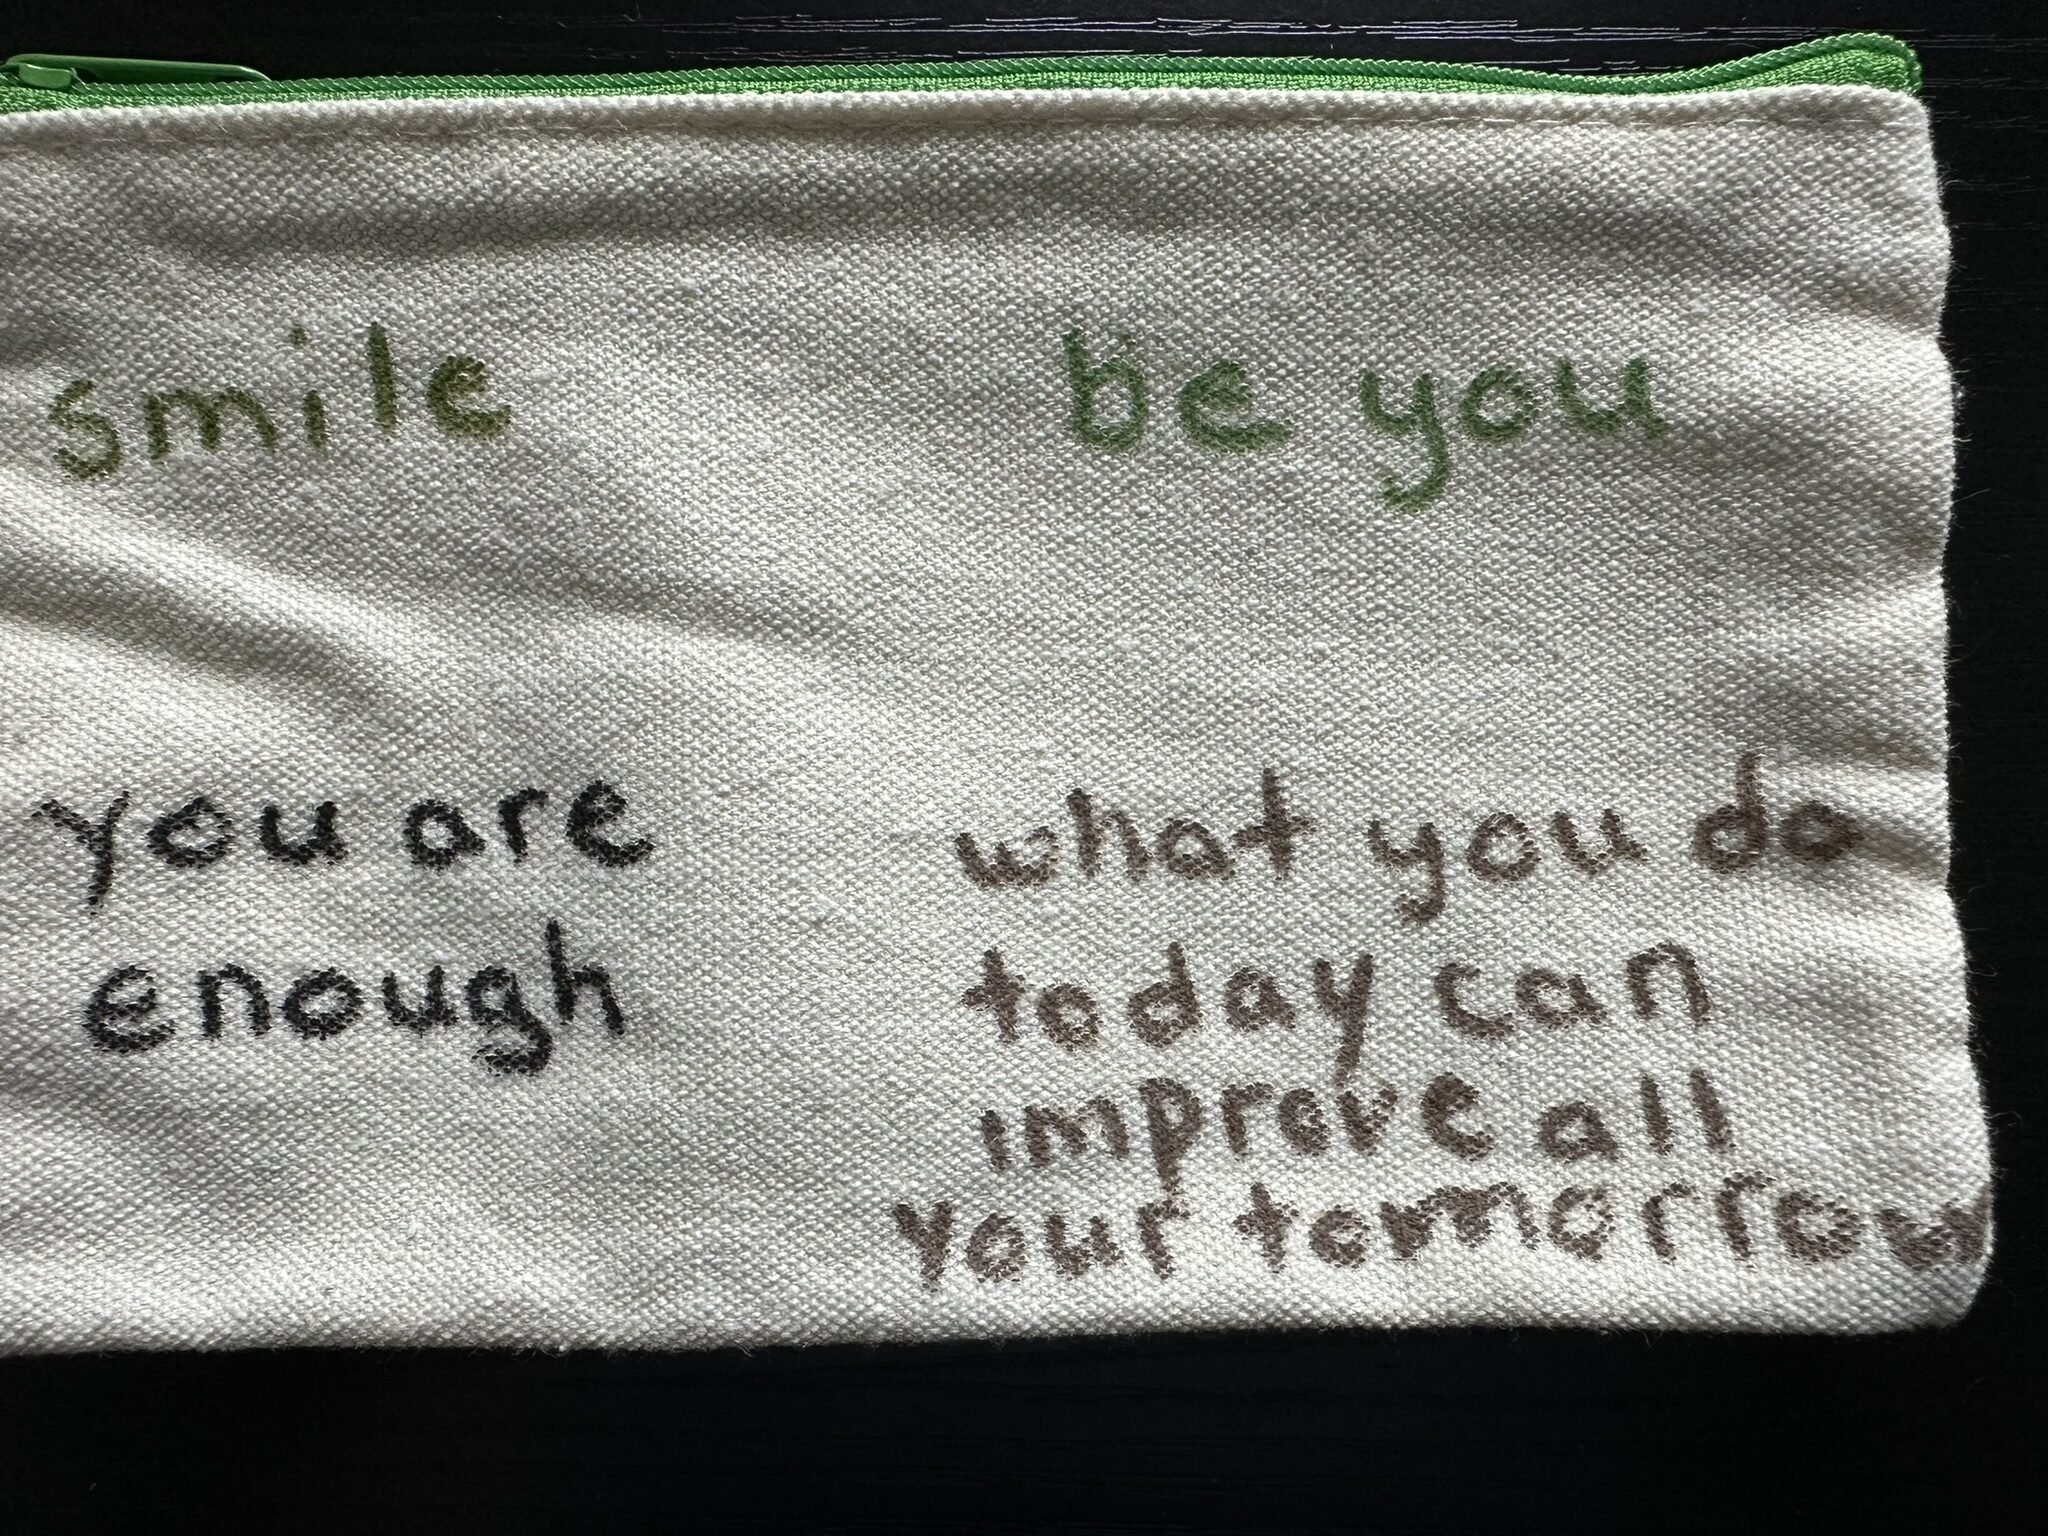 smile
be you
you are
enough
what you do
today can
improve all
your tomorrow